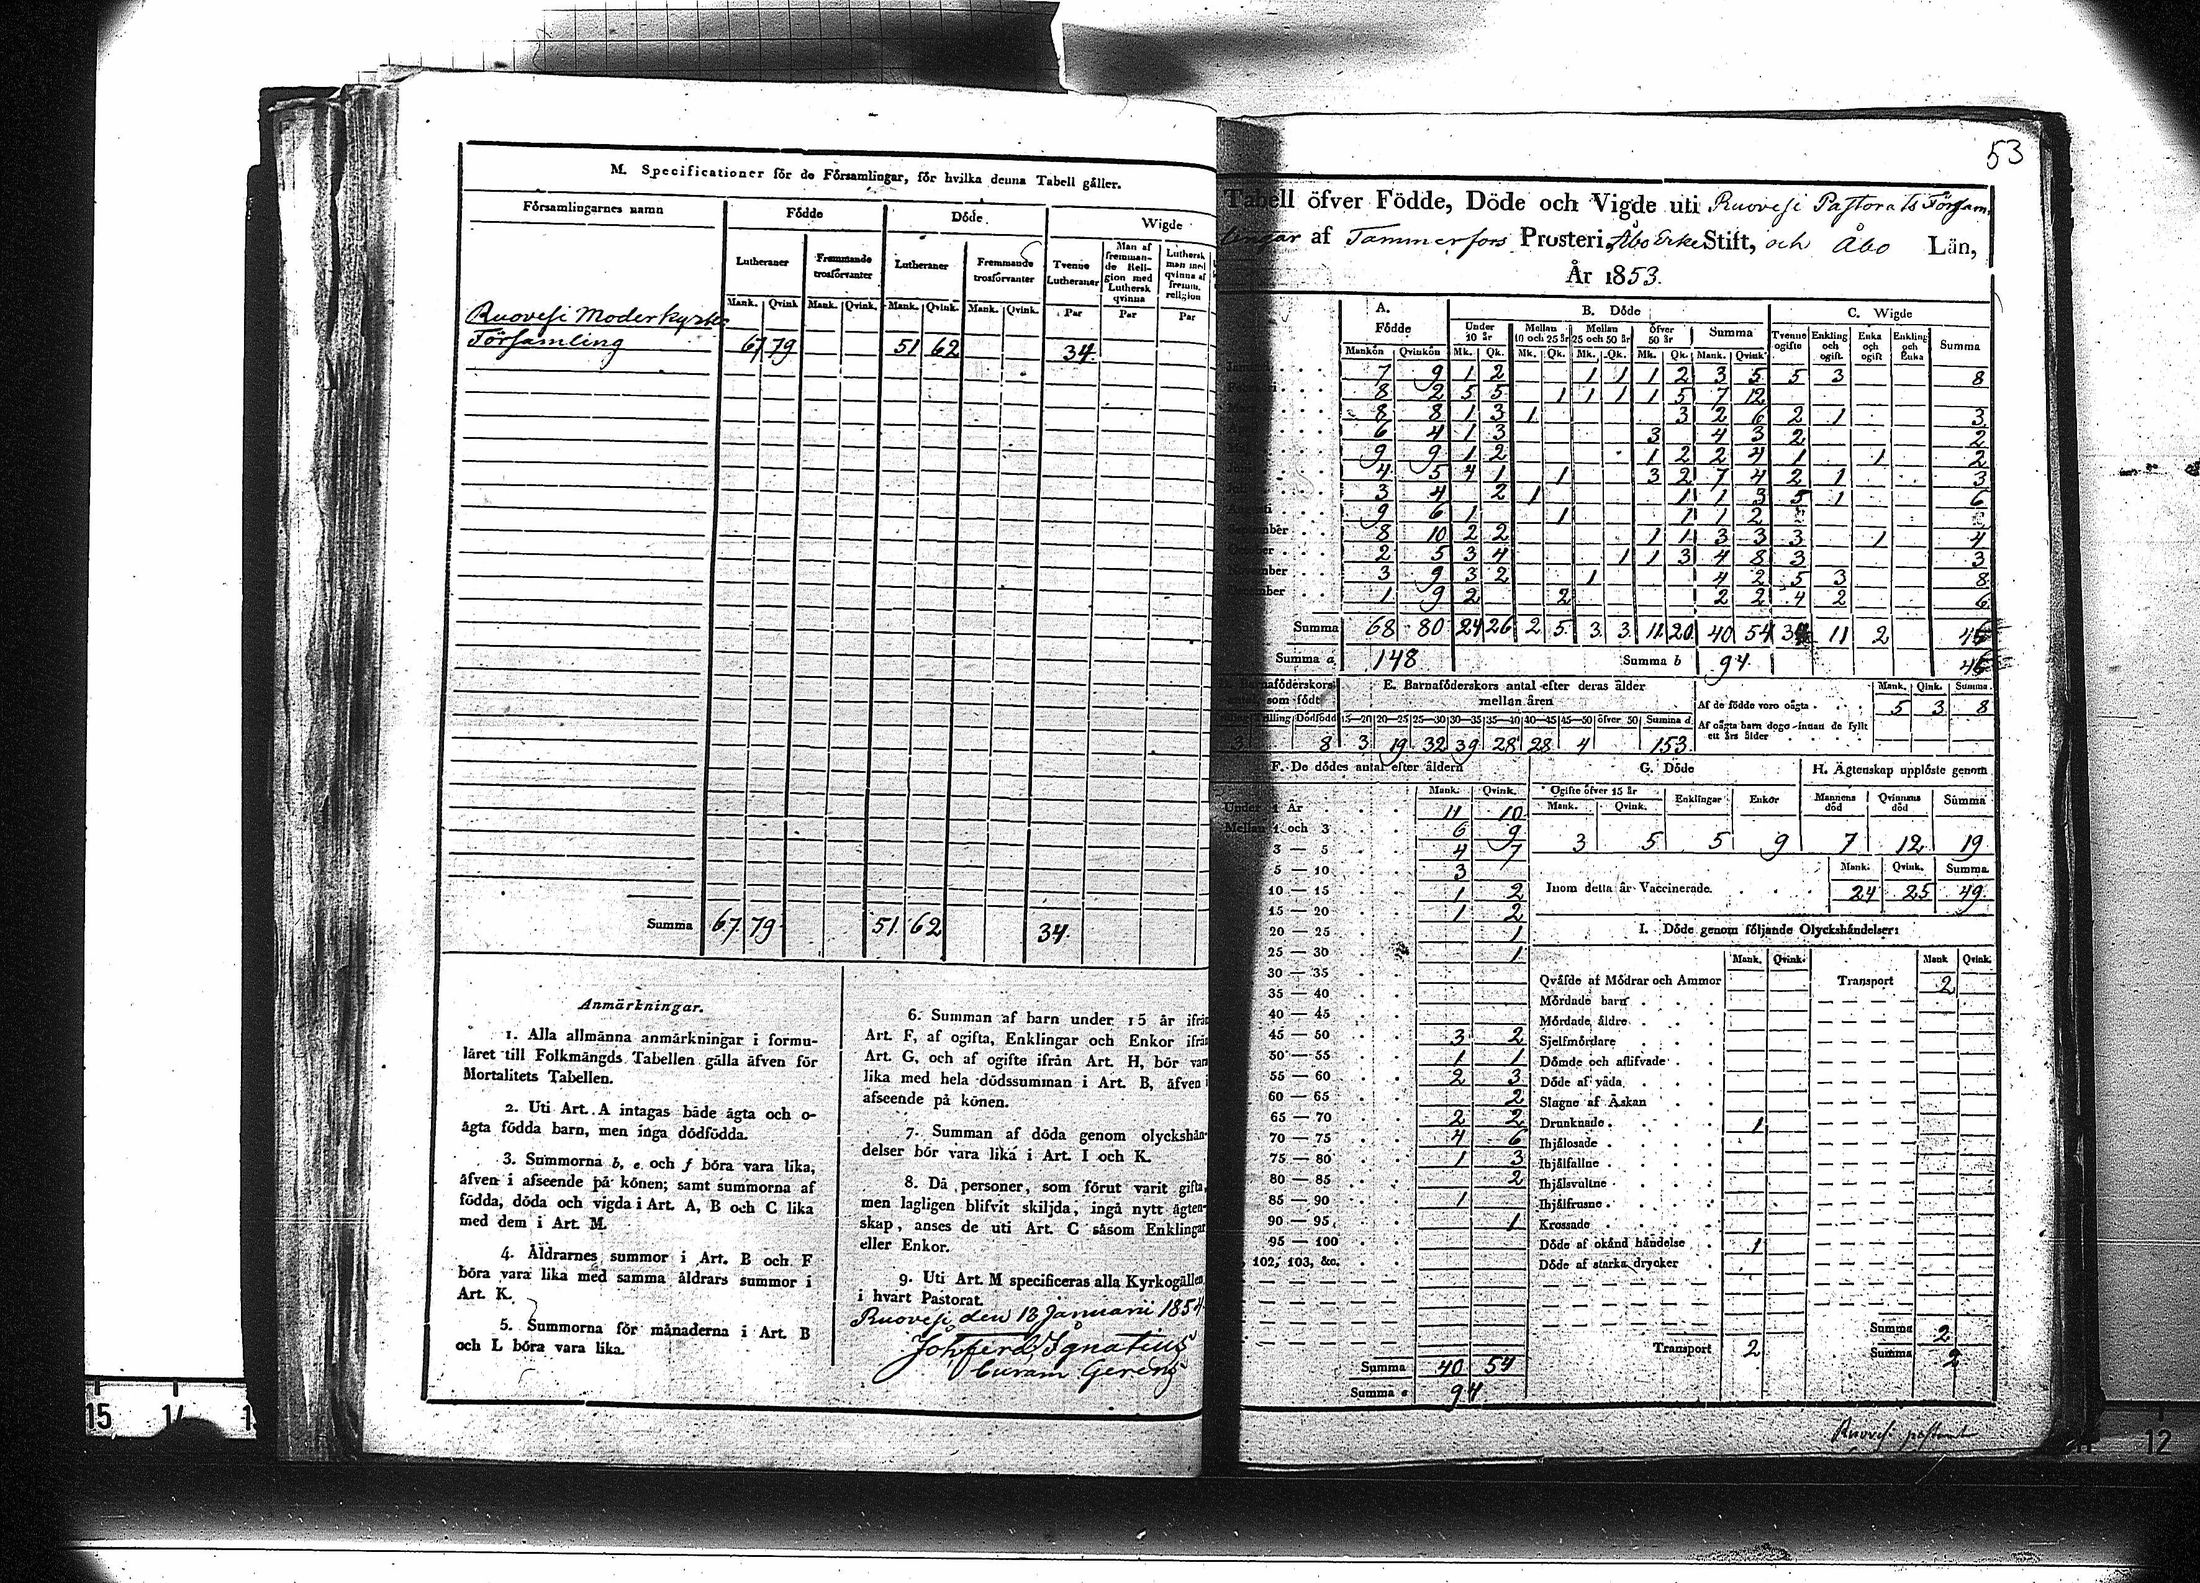 M. Specificationer för de Församlingar, för hvilka denna Tabell gäller.
Församlingarnes namn | Födde | Döde | Wigde
Lutheraner | Fremmande trosförvanter | Lutheraner | Fremmande trosförvanter | Tvenne Lutheraner | Man af fremmande Religion med Luthersk qvinna | Luthersk man med qvinna af fremm. religion
Mank. | Qvink | Mank. | Qvink. | Mank. | Qvink. | Mank. | Qvink. | Par | Par | Par
Ruovesi Moderkyrko
Församling 67 79 51 62 34
Summa 67 79 51 62 34
Anmärkningar.
1. Alla allmänna anmärkningar i formu-
läret till Folkmängds Tabellen gälla äfven för
Mortalitets Tabellen.
2. Uti Art. A intagas både ägta och o-
ägta födda barn, men inga dödfödda.
3. Summorna b, e och f böra vara lika,
äfven i afseende på könen; samt summorna af
födda, döda och vigda i Art. A, B och C lika
med dem i Art. M.
4. Åldrarnes summor i Art. B och F
böra vara lika med samma åldrars summor i
Art. K.
5. Summorna för månaderna i Art. B
och L böra vara lika.
6. Summan af barn under 15 år ifrån
Art. F, af ogifta, Enklingar och Enkor ifrån
Art. G, och af ogifte ifrån Art. H, bör vara
lika med hela dödssumman i Art. B, äfven i
afseende på könen.
7. Summan af döda genom olyckshän-
delser bör vara lika i Art. I och K.
8. Då personer, som förut varit gifta,
men lagligen blifvit skiljda, ingå nytt ägten-
skap, anses de uti Art. C såsom Enklingar
eller Enkor.
9. Uti Art. M specificeras alla Kyrkogällen
i hvart Pastorat.
Ruovesi den 18 Januarii 1854.
Joh ferd. Ignatius
Curam Gerens
53
Tabell öfver Födde, Döde och Vigde uti Ruovesi Pastorats Försam-
lingar af Tammerfors Prosteri, Åbo Erke Stift, och Åbo Län,
År 1853.
A. Födde | B. Döde | C. Wigde
Under 10 år | Mellan 10 och 25 år | Mellan 25 och 50 år | öfver 50 år | Summa | Tvenne ogifte | Enkling och ogift. | Enka och ogift | Enkling och Enka | Summa
Mankön | Qvinkön | Mk. | Qk. | Mk. | Qk. | Mk. | Qk. | Mk. | Qk. | Mank. | Qvink.
7 9 1 2 1 1 1 2 3 5 5 3 8
8 2 5 5 1 1 1 1 5 7 12
8 8 1 3 1 3 2 6 2 1 3
6 4 1 3 3 4 3 2 2
9 9 1 2 1 2 2 4 1 1 2
4 5 4 1 1 3 2 7 4 2 1 3
3 4 2 1 1 1 3 5 1 6
Augusti 9 6 1 1 1 1 2
September 8 10 2 2 1 1 3 3 3 1 4
October 2 5 3 4 1 1 3 4 8 3 3
November 3 9 3 2 1 4 2 5 3 8
December 1 9 2 2 2 2 4 2 6
Summa 68 80 24 26 2 5 3 3 11 20 40 54 11 2
Summa a 148 Summa b 94
Barnaföderskors | E. Barnaföderskors antal efter deras ålder mellan åren
som födt
Tvilling | Dödfödd | 15—20 | 20—25 | 25—30 | 30—35 | 35—40 | 40—45 | 45—50 | öfver 50 | Summa d
3 8 3 19 32 39 28 28 4 153
Mank. | Qink. | Summa.
Af de födde voro oägta 5 3 8
Af oägta barn dogo innan de fyllt
ett års ålder
F. De dödes antal efter åldern
Mank. | Qvink.
Under 1 År 11 10
Mellan 1 och 3 6 9
3 — 5 4 7
5 — 10 3
10 — 15 1 2
15 — 20 1 2
20 — 25 1
25 — 30 1
30 — 35
35 — 40
40 — 45
45 — 50 3 2
50 — 55 1 1
55 — 60 2 3
60 — 65 2
65 — 70 2 2
70 — 75 4 6
75 — 80 1 3
80 — 85 2
85 — 90 1
90 — 95 1
95 — 100
102, 103, &c.
Summa 40 54
Summa e 94
G. Döde | H. Ägtenskap upplöste genom
Ogifte öfver 15 år | Enklingar | Enkor | Mannens död | Qvinnans död | Summa
Mank. | Qvink.
3 5 5 9 7 12 19
Mank. | Qvink. | Summa.
Inom detta år Vaccinerade. 24 25 49
I. Döde genom följande Olyckshändelser:
Mank. | Qvink. | Mank | Qvink.
Qväfde af Mödrar och Ammor | Transport 2
Mördade barn
Mördade äldre
Sjelfmördare
Dömde och aflifvade
Döde af våda
Slagne af Åskan
Drunknade 1
Ihjälosade
Ihjälfallne
Ihjälsvultne
Ihjälfrusne
Krossade
Döde af okänd händelse 1
Döde af starka drycker
Summa 2
Transport 2 Summa 2
Ruovesi pastorat
15 14 12